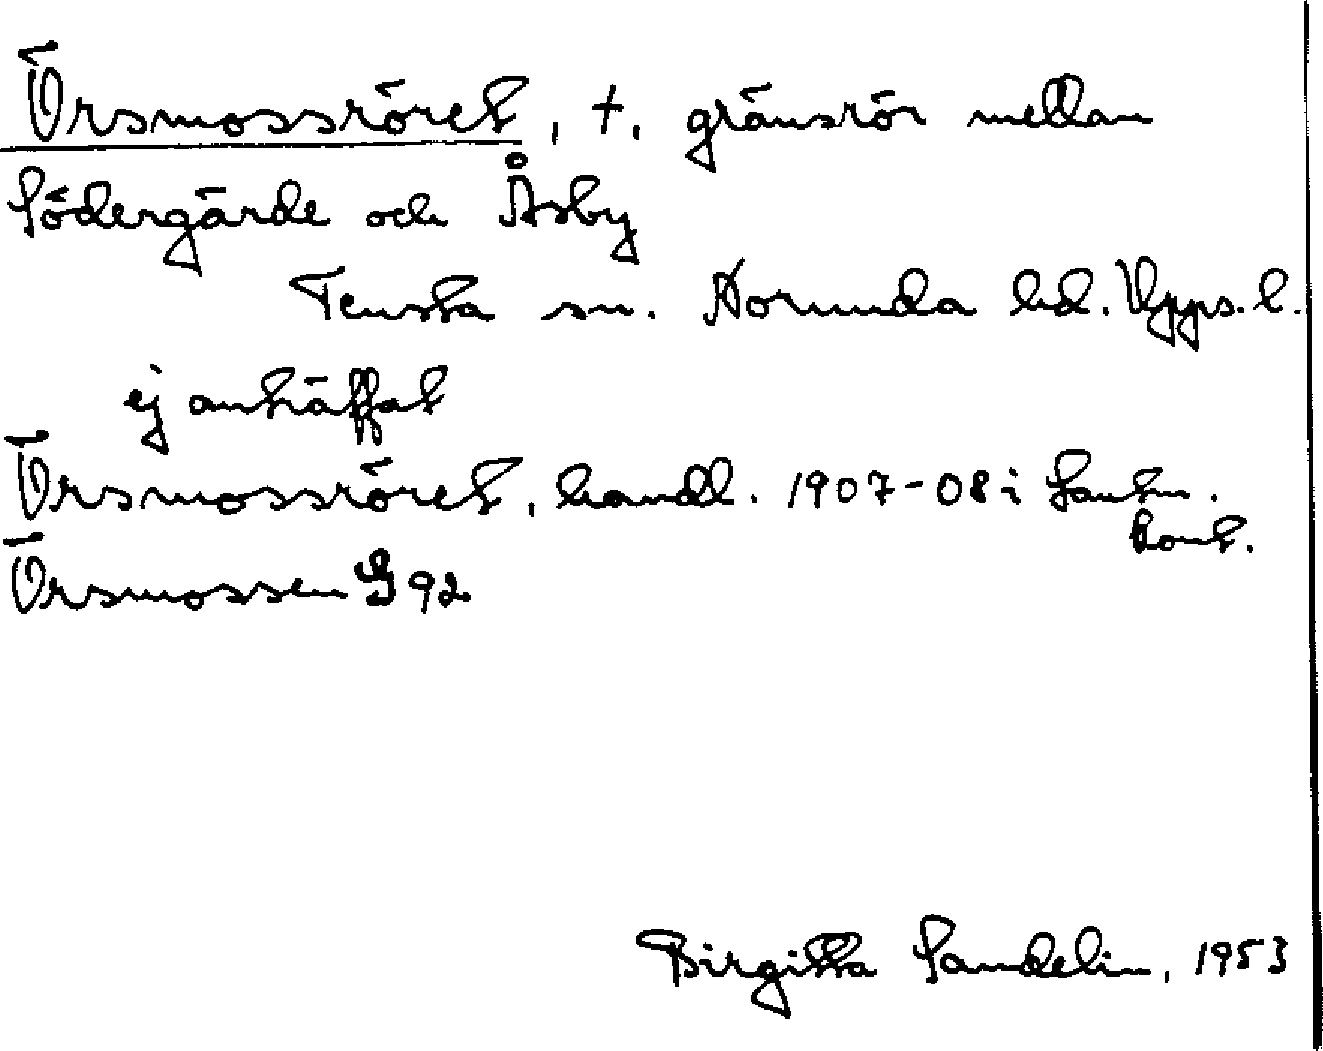 Örsmossröret, +, gränsrör mellan
Södergärde och Åsby
Tensta sn. Norunda hd. Upps. l.
ej anträffat
Örsmossröret, handl. 1907-08 i Lantm.
kont.
Örsmossen S 92
Birgitta Sandelin, 1953